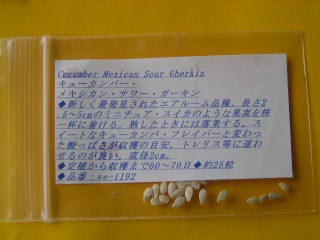 Cucumber Mexican Sour Gherkin
キューカンバー・
メキシカン・サワー・ガーキン
◆新しく最発見されたエアルーム品種。長さ2
.5～5cmのミニチュア・スイカのような果実を株
一杯に着ける。熟したときには落果する。ス
イートなキューカンバ・フレイバーと変わっ
た酸っぱさが収穫の目安。トレリス等に這わ
せるのが良い。直径2cm。
◆定植から収穫まで60～70日◆約25粒
◆品番：se-1192